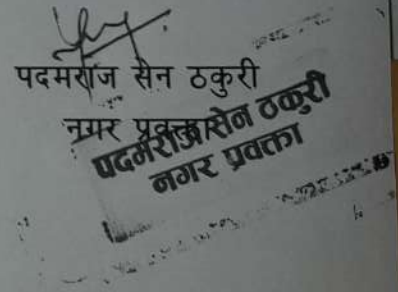 पदमराज सेन ठकुरी
नगर प्रवक्ता
पदमराज सेन ठकुरी
नगर प्रवक्ता